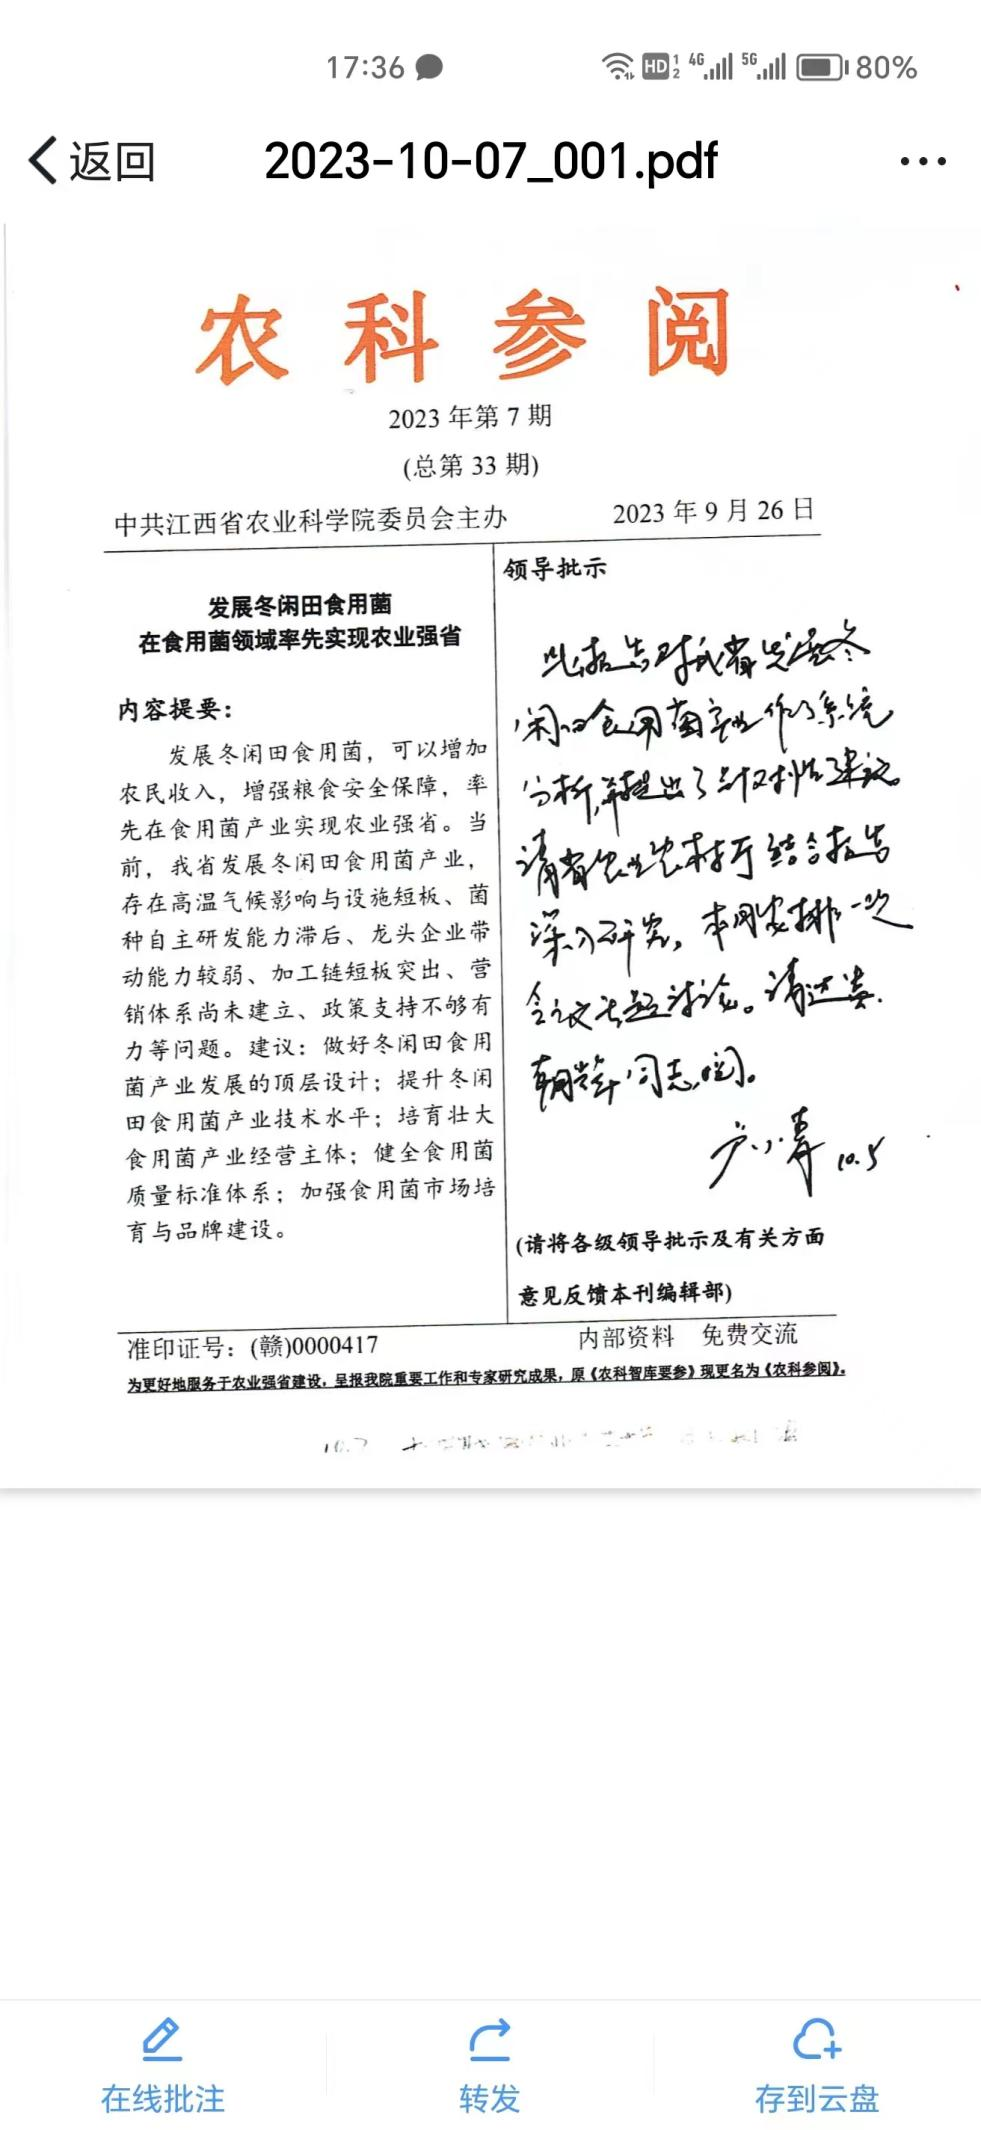 17:36
HD 1 2 4G 5G 80%
返回
2023-10-07_001.pdf
农科参阅
2023 年第 7 期
(总第 33 期)
中共江西省农业科学院委员会主办
2023 年 9 月 26 日
发展冬闲田食用菌
在食用菌领域率先实现农业强省
内容提要：
发展冬闲田食用菌，可以增加
农民收入，增强粮食安全保障，率
先在食用菌产业实现农业强省。当
前，我省发展冬闲田食用菌产业，
存在高温气候影响与设施短板、菌
种自主研发能力滞后、龙头企业带
动能力较弱、加工链短板突出、营
销体系尚未建立、政策支持不够有
力等问题。建议：做好冬闲田食用
菌产业发展的顶层设计；提升冬闲
田食用菌产业技术水平；培育壮大
食用菌产业经营主体；健全食用菌
质量标准体系；加强食用菌市场培
育与品牌建设。
领导批示
此报告对我省发展冬
闲田食用菌产业作了系统
分析，并提出了针对性建议。
请省农业农村厅结合报告
深入研究，本周安排一次
会议专题讨论。请
同志阅。
卢小青 10.5
(请将各级领导批示及有关方面
意见反馈本刊编辑部)
准印证号：(赣)0000417
内部资料 免费交流
为更好地服务于农业强省建设，呈报我院重要工作和专家研究成果，原《农科智库要参》现更名为《农科参阅》。
在线批注
转发
存到云盘